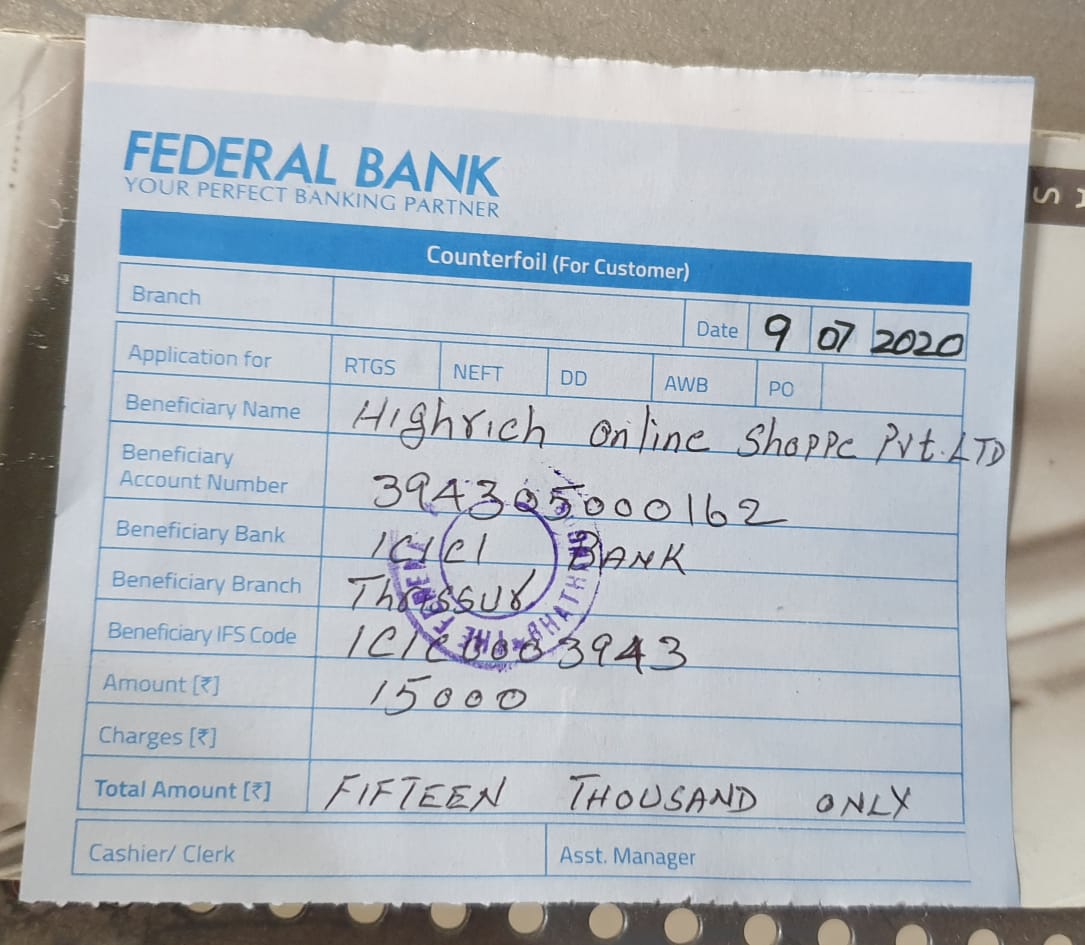 FEDERAL BANK
YOUR PERFECT BANKING PARTNER
Counterfoil (For Customer)
Branch Date 9 07 2020
Application for RTGS NEFT DD AWB PO
Beneficiary Name Highrich Online Shoppe Pvt. LTD
Beneficiary
Account Number 394305000162
Beneficiary Bank ICICI BANK
Beneficiary Branch Thrissur
Beneficiary IFS Code ICIC0003943
Amount [₹] 15000
Charges [₹]
Total Amount [₹] FIFTEEN THOUSAND ONLY
Cashier/ Clerk Asst. Manager
THE